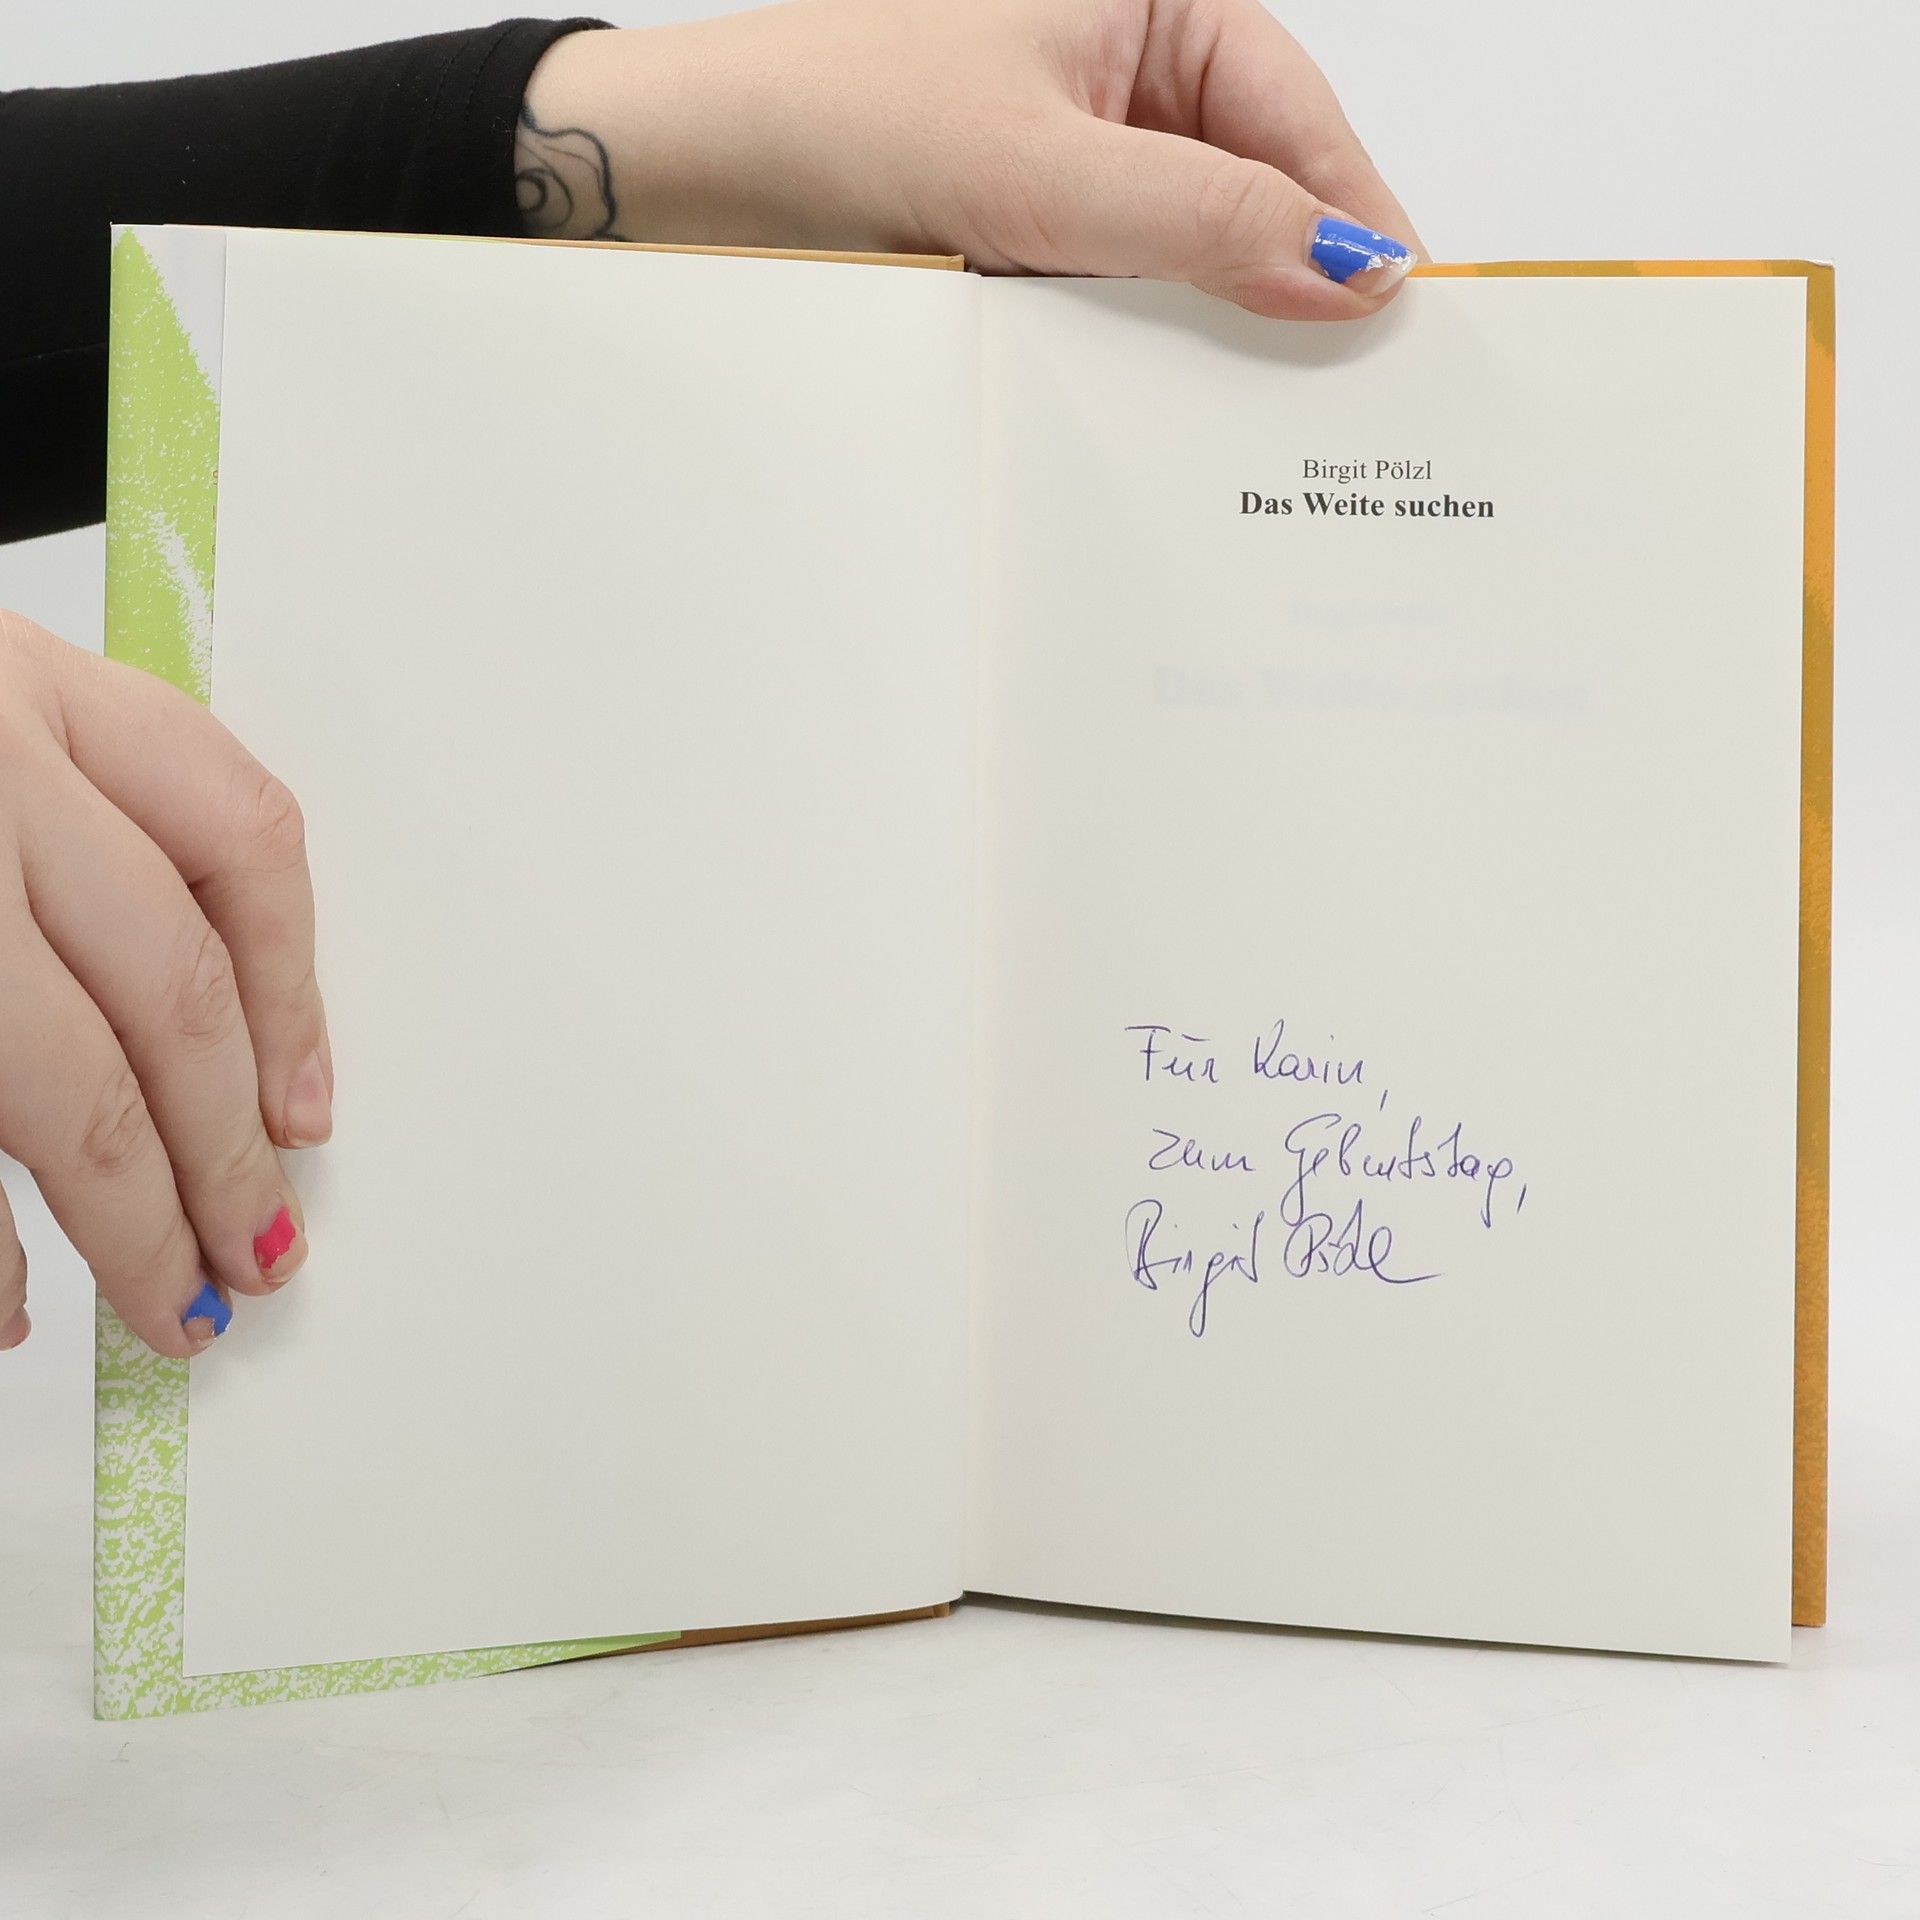 Birgit Pölzl
Das Weite suchen
Das Weite suchen
Für Karin,
zum Geburtstag,
Birgit Pölzl